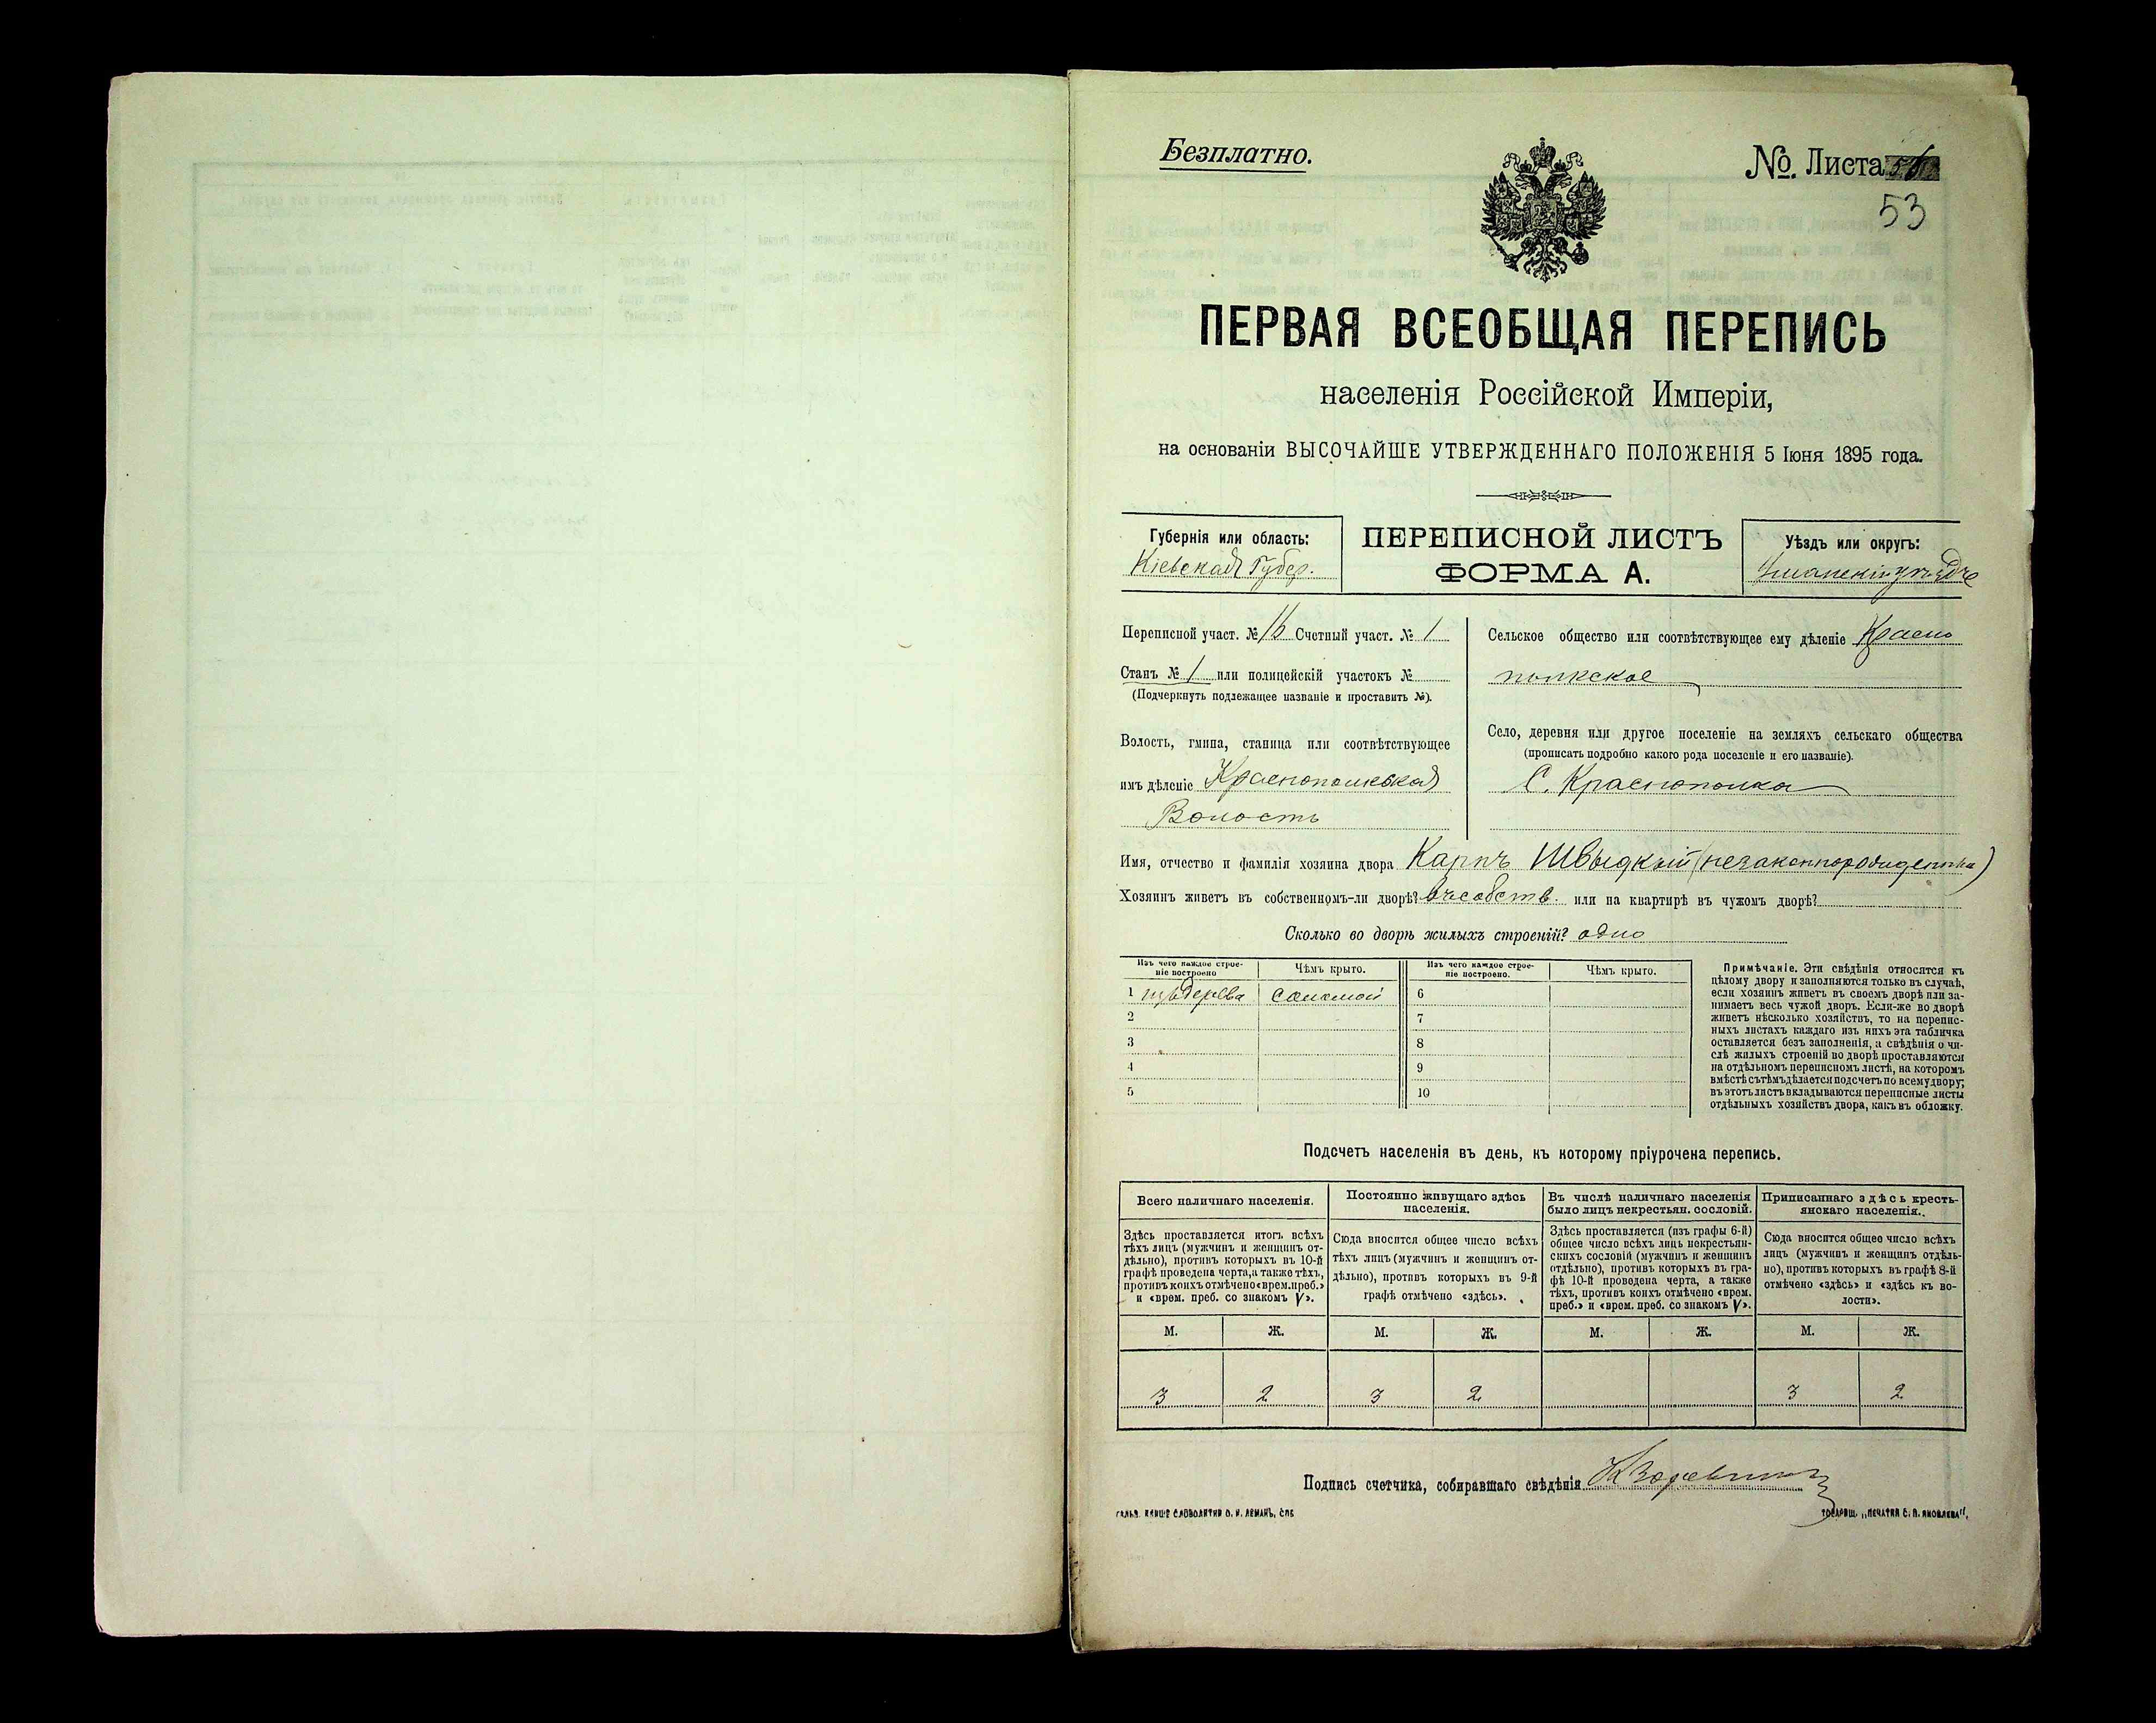 Безплатно.
№. Листа
53
ПЕРВАЯ ВСЕОБЩАЯ ПЕРЕПИСЬ
населенія Россійской Имперіи,
на основаніи ВЫСОЧАЙШЕ УТВЕРЖДЕННАГО ПОЛОЖЕНІЯ 5 Іюня 1895 года.
Губернія или область:
Кіевская Губер.
ПЕРЕПИСНОЙ ЛИСТЪ
ФОРМА А.
Уѣздъ или округъ:
Уманскій уѣздъ
Переписной участ. № 16 Счетный участ. № 1
Станъ № 1 или полицейскій участокъ №
(Подчеркнуть подлежащее названіе и проставить №).
Волость, гмина, станица или соотвѣтствующее
имъ дѣленіе Краснопольская
Волость
Сельское общество или соотвѣтствующее ему дѣленіе Красно
польское
Село, деревня или другое поселеніе на земляхъ сельскаго общества
(прописать подробно какого рода поселеніе и его названіе).
С. Краснополка
Имя, отчество и фамилія хозяина двора Карпъ Швыдкый (незаконнорожденный)
Хозяинъ живетъ въ собственномъ-ли дворѣ? въ собств. или на квартирѣ въ чужомъ дворѣ?
Сколько во дворѣ жилыхъ строеній? одно
Изъ чего каждое строе-
ніе построено
Чѣмъ крыто.
Изъ чего каждое строе-
ніе построено.
Чѣмъ крыто.
1 изъ дерева соломой 6
2 7
3 8
4 9
5 10
Примѣчаніе. Эти свѣдѣнія относятся къ
цѣлому двору и заполняются только въ случаѣ,
если хозяинъ живетъ въ своемъ дворѣ или за-
нимаетъ весь чужой дворъ. Если-же во дворѣ
живетъ нѣсколько хозяйствъ, то на перепис-
ныхъ листахъ каждаго изъ нихъ эта табличка
оставляется безъ заполненія, а свѣдѣнія о чи-
слѣ жилыхъ строеній во дворѣ проставляются
на отдѣльномъ переписномъ листѣ, на которомъ
вмѣстѣ съ тѣмъ дѣлается подсчетъ по всему двору;
въ этотъ листъ вкладываются переписные листы
отдѣльныхъ хозяйствъ двора, какъ въ обложку.
Подсчетъ населенія въ день, къ которому пріурочена перепись.
Всего наличнаго населенія.
Здѣсь проставляется итогъ всѣхъ
тѣхъ лицъ (мужчинъ и женщинъ от-
дѣльно), противъ которыхъ въ 10-й
графѣ проведена черта, а также тѣхъ,
противъ коихъ отмѣчено «врем. преб.»
и «врем. преб. со знакомъ V».
Постоянно живущаго здѣсь
населенія.
Сюда вносится общее число всѣхъ
тѣхъ лицъ (мужчинъ и женщинъ от-
дѣльно), противъ которыхъ въ 9-й
графѣ отмѣчено «здѣсь».
Въ числѣ наличнаго населенія
было лицъ некрестьян. сословій.
Здѣсь проставляется (изъ графы 6-й)
общее число всѣхъ лицъ некрестьян-
скихъ сословій (мужчинъ и женщинъ
отдѣльно), противъ которыхъ въ гра-
фѣ 10-й проведена черта, а также
тѣхъ, противъ коихъ отмѣчено «врем.
преб.» и «врем. преб. со знакомъ V».
Приписаннаго здѣсь кресть-
янскаго населенія.
Сюда вносится общее число всѣхъ
лицъ (мужчинъ и женщинъ отдѣль-
но), противъ которыхъ въ графѣ 8-й
отмѣчено «здѣсь» и «здѣсь въ во-
лости».
М. Ж. М. Ж. М. Ж. М. Ж.
3 2 3 2 3 2
Подпись счетчика, собиравшаго свѣдѣнія
ГАЛЬВ. КЛИШЕ СЛОВОЛИТНИ О. И. ЛЕМАНЪ, СПБ
ТОВАРИЩ. „ПЕЧАТНЯ С. П. ЯКОВЛЕВА“.